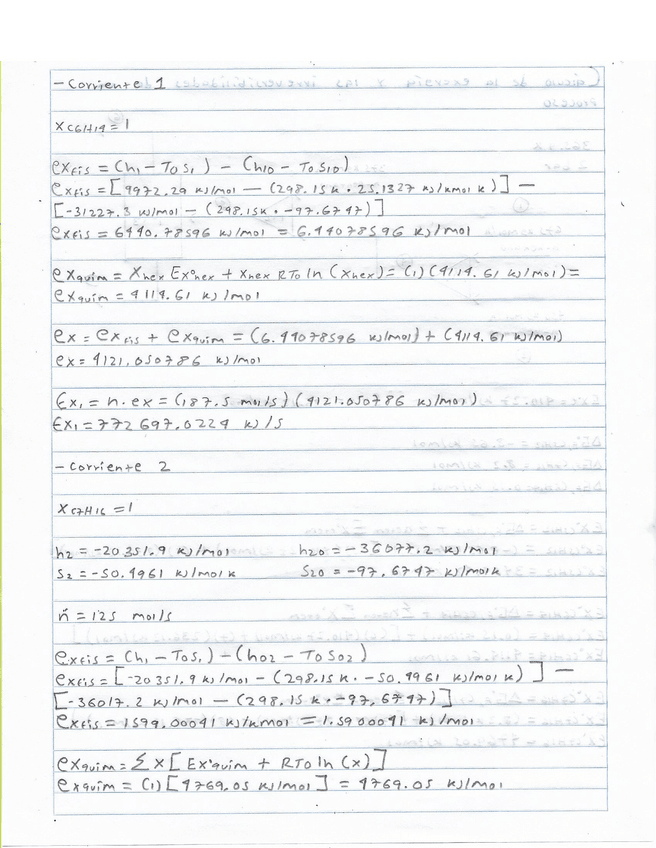 - Corriente 1
xC6H14 = 1
exfis = (h1 - T0S1) - (h10 - T0S10)
exfis = [9972.29 kJ/mol - (298.15k · 25.1327 kJ/kmol k)] -
[-31227.3 kJ/mol - (298.15k · -97.6747)]
exfis = 6440.78596 kJ/mol = 6.44078596 kJ/mol
exquim = Xhex Ex°hex + Xhex RT0 ln (Xhex) = (1) (4114.61 kJ/mol) =
exquim = 4114.61 kJ/mol
ex = exfis + exquim = (6.44078596 kJ/mol) + (4114.61 kJ/mol)
ex = 4121.050786 kJ/mol
Ex1 = n. ex = (187.5 mol/s) (4121.050786 kJ/mol)
Ex1 = 772 697.0224 kJ/s
- Corriente 2
xC7H16 = 1
h2 = -20351.9 kJ/mol h20 = -36077.2 kJ/mol
S2 = -50.4961 kJ/mol k S20 = -97.6747 kJ/molk
ṅ = 125 mol/s
exfis = (h1 - T0S1) - (h02 - T0S02)
exfis = [-20351.9 kJ/mol - (298.15k · -50.4961 kJ/mol k)] -
[-36017.2 kJ/mol - (298.15k · -97,6747)]
exfis = 1599.00041 kJ/kmol = 1.5900041 kJ/mol
exquim = Σ x [Ex°quim + RT0 ln (x)]
exquim = (1) [4769.05 kJ/mol] = 4769.05 kJ/mol